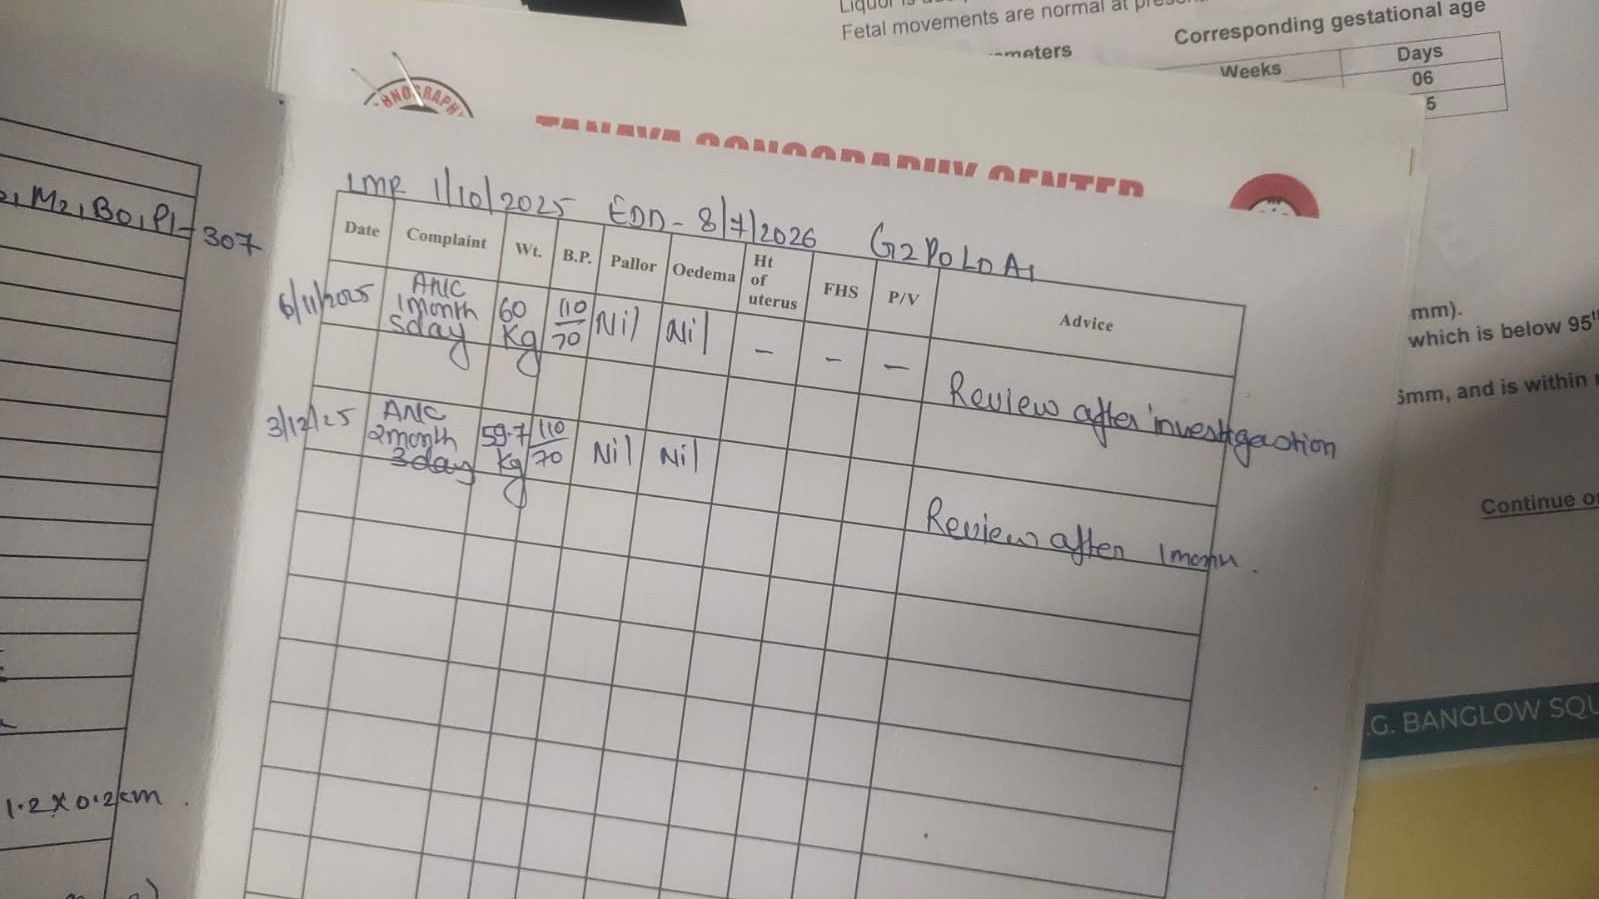 Fetal movements are normal at
Corresponding gestational age
Weeks Days
06
5
TANAYA SONOGRAPHY CENTER
LMP 1/10/2025 EDD - 8/7/2026 G2P0L0A1
Date Complaint Wt. B.P. Pallor Oedema Ht of uterus FHS P/V Advice
6/11/2025 ANC 1month 5day 60 Kg 110/70 Nil Nil - - - Review after investigaction
3/12/25 ANC 2month 3day 59.7 kg 110/70 Nil Nil Review after 1
M2, B0, P1 - 307
1.2 x 0.2cm.
mm).
which is below 95
mm, and is within
Continue
.G. BANGLOW SQU